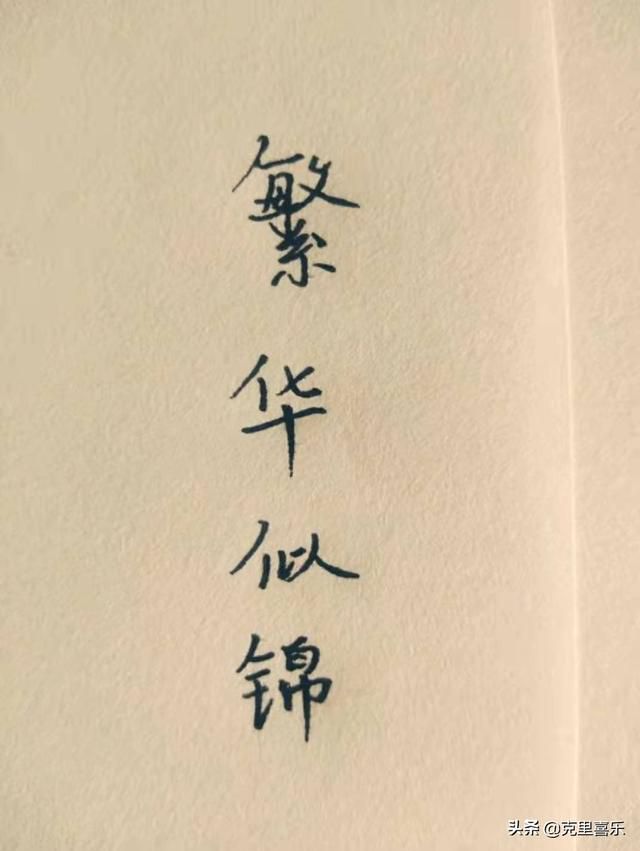 繁华似锦
头条 @克里喜乐